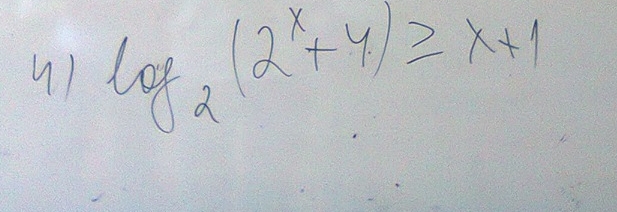 4) log₂(2ˣ+4) ≥ x+1